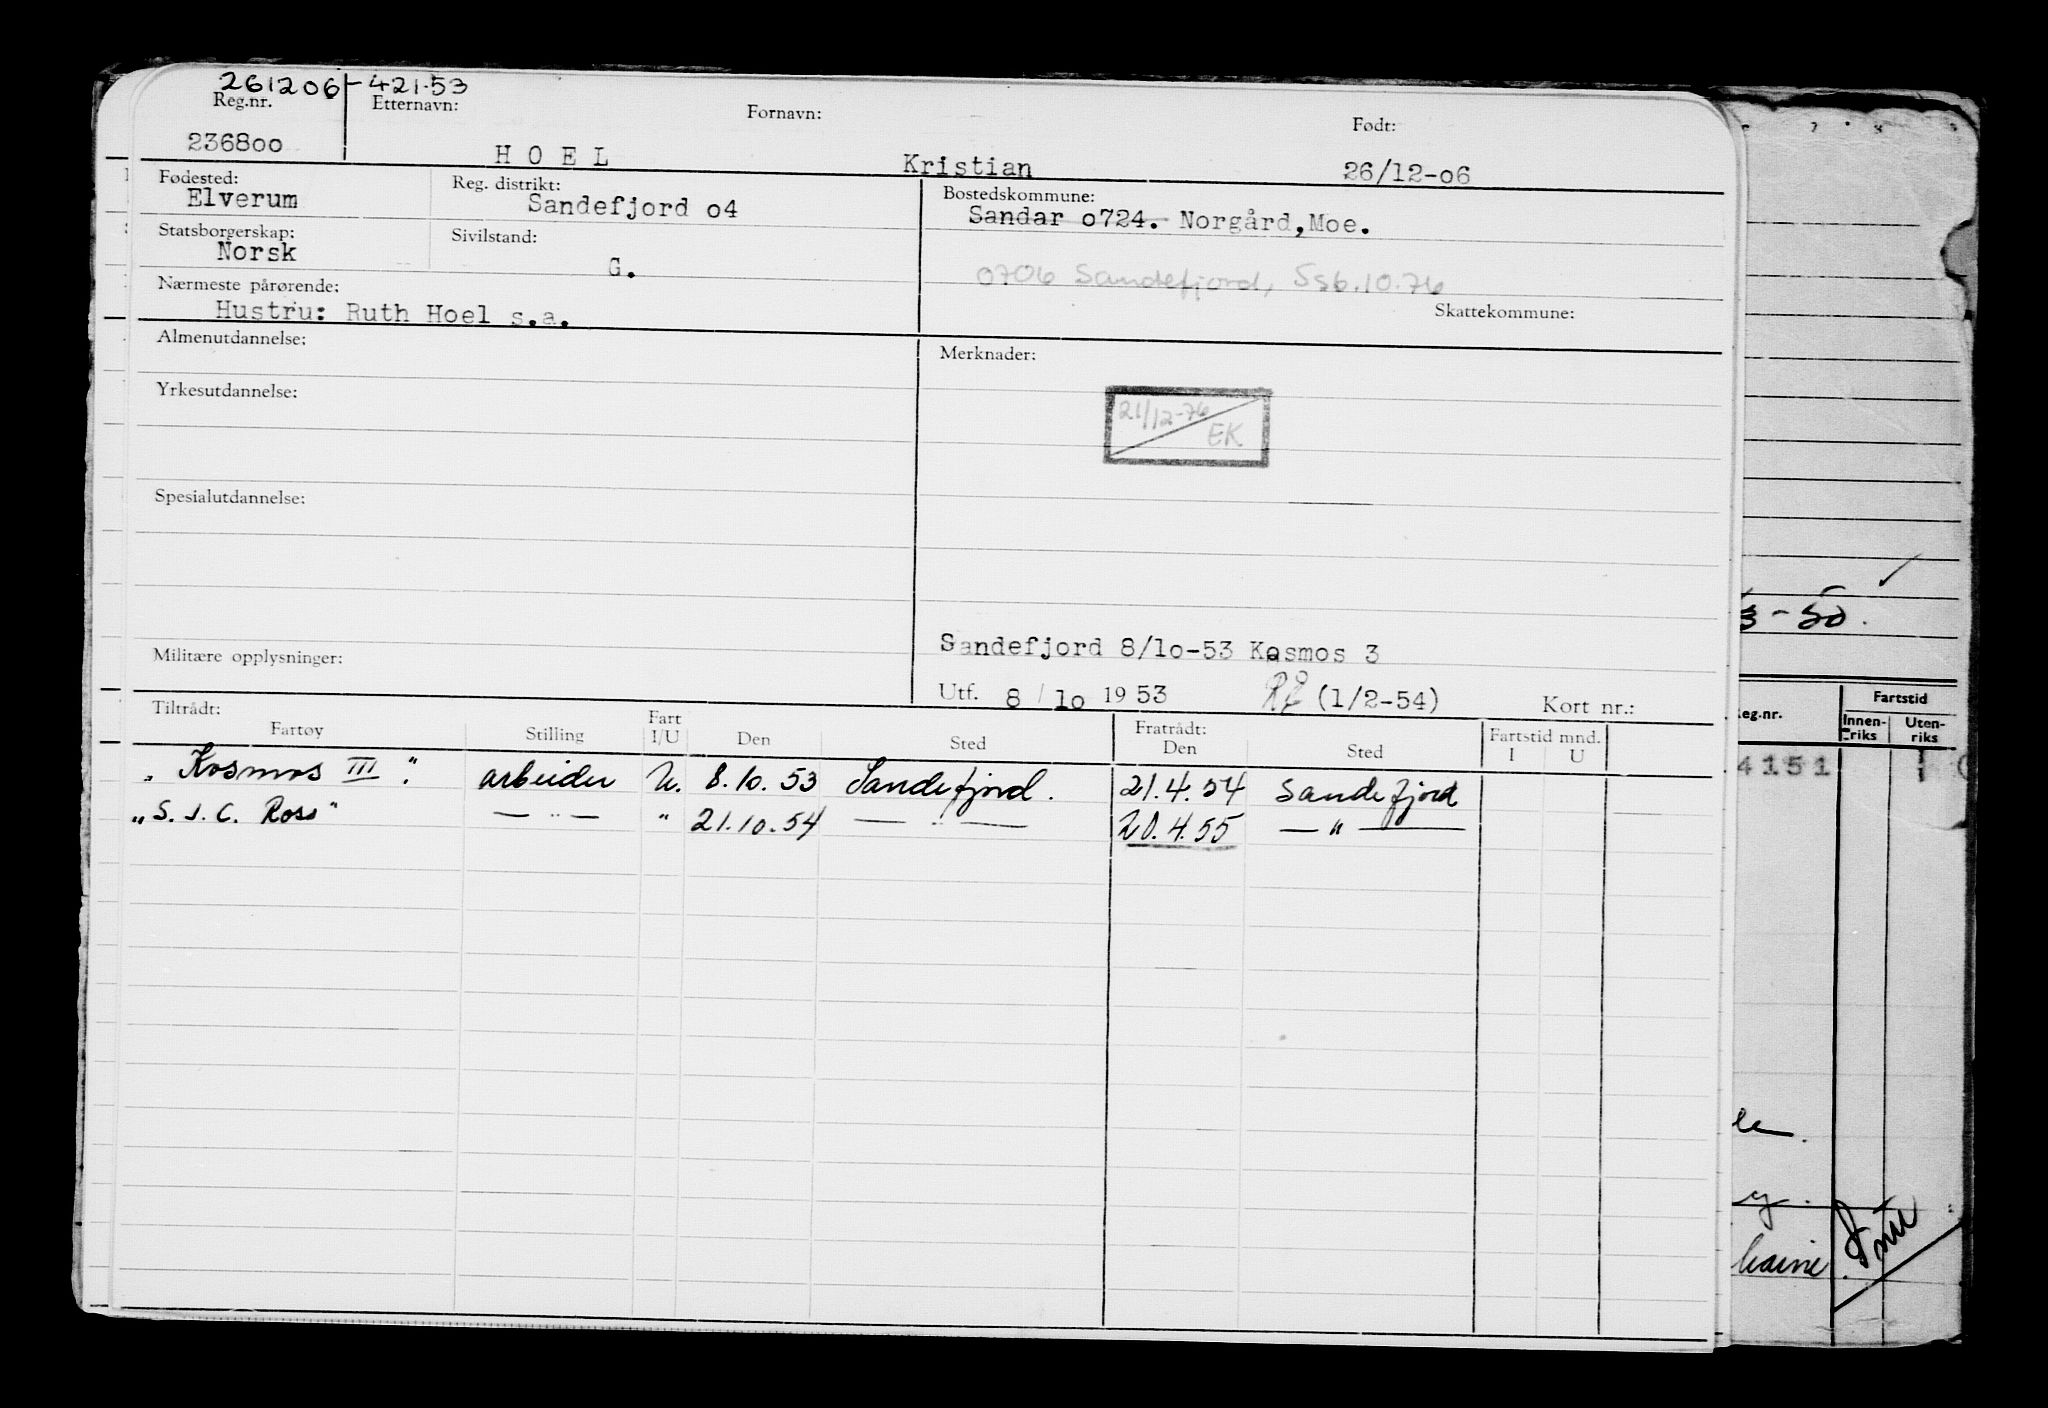 261206-421.53
Reg.nr. Etternavn: Fornavn: Født:
236800 HOEL Kristian 26/12-06
Fødested: Reg. distrikt: Bostedskommune:
Elverum Sandefjord 04 Sandar 0724. Norgård, Moe.
Statsborgerskap: Sivilstand:
Norsk G.
0706 Sandefjord, Ssb.10.76
Nærmeste pårørende: Skattekommune:
Hustru: Ruth Hoel s.a.
Almenutdannelse: Merknader:
Yrkesutdannelse:
21/12-76
EK
Spesialutdannelse:
Militære opplysninger:
Sandefjord 8/10-53 Kosmos 3
Utf. 8/10 1953 (1/2-54) Kort nr.:
Tiltrådt: Fratrådt:
Fartøy Stilling Fart I/U Den Sted Den Sted Fartstid mnd. I U
"Kosmos III". arbeider U. 8.10.53 Sandefjord. 21.4.54 Sandefjord
"S. J. C. Ross" — " — " 21.10.54 — " — 20.4.55 — " —
3-50.
Reg.nr. Fartstid
Innen-riks Uten-riks
4151